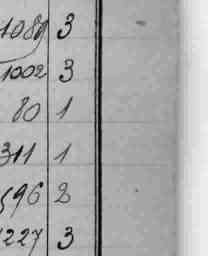 1089 3
1002 3
80 1
311 1
596 2
1227 3